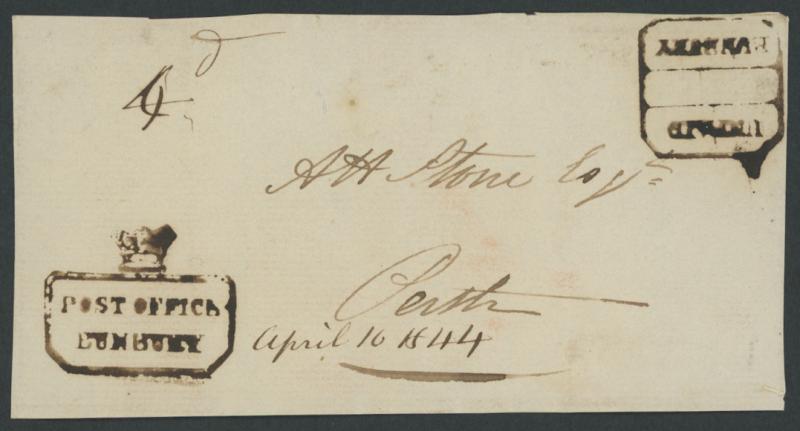 4d
A H Stone Esqr
Perth
April 16 1844
POST OFFICE
BUNBURY